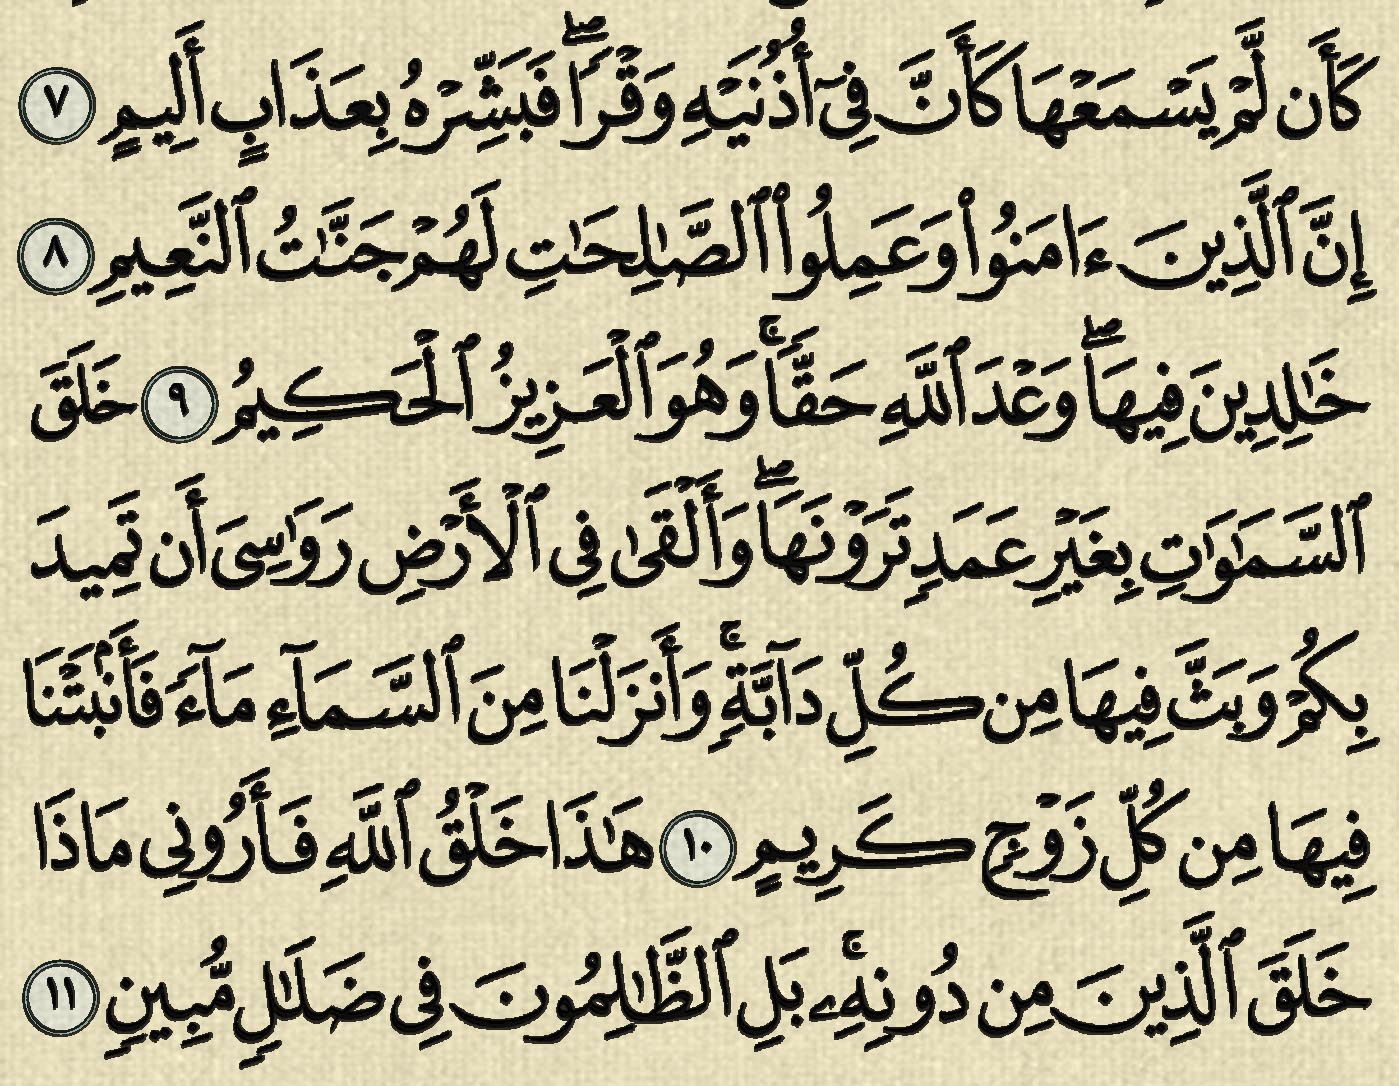 كَأَن لَّمْ يَسْمَعْهَا كَأَنَّ فِىٓ أُذُنَيْهِ وَقْرًا ۖ فَبَشِّرْهُ بِعَذَابٍ أَلِيمٍ ٧
إِنَّ ٱلَّذِينَ ءَامَنُوا۟ وَعَمِلُوا۟ ٱلصَّـٰلِحَـٰتِ لَهُمْ جَنَّـٰتُ ٱلنَّعِيمِ ٨
خَـٰلِدِينَ فِيهَا ۖ وَعْدَ ٱللَّهِ حَقًّا ۚ وَهُوَ ٱلْعَزِيزُ ٱلْحَكِيمُ ٩ خَلَقَ
ٱلسَّمَـٰوَٰتِ بِغَيْرِ عَمَدٍ تَرَوْنَهَا ۖ وَأَلْقَىٰ فِى ٱلْأَرْضِ رَوَٰسِىَ أَن تَمِيدَ
بِكُمْ وَبَثَّ فِيهَا مِن كُلِّ دَآبَّةٍ ۚ وَأَنزَلْنَا مِنَ ٱلسَّمَآءِ مَآءً فَأَنۢبَتْنَا
فِيهَا مِن كُلِّ زَوْجٍ كَرِيمٍ ١٠ هَـٰذَا خَلْقُ ٱللَّهِ فَأَرُونِى مَاذَا
خَلَقَ ٱلَّذِينَ مِن دُونِهِۦ ۚ بَلِ ٱلظَّـٰلِمُونَ فِى ضَلَـٰلٍ مُّبِينٍ ١١